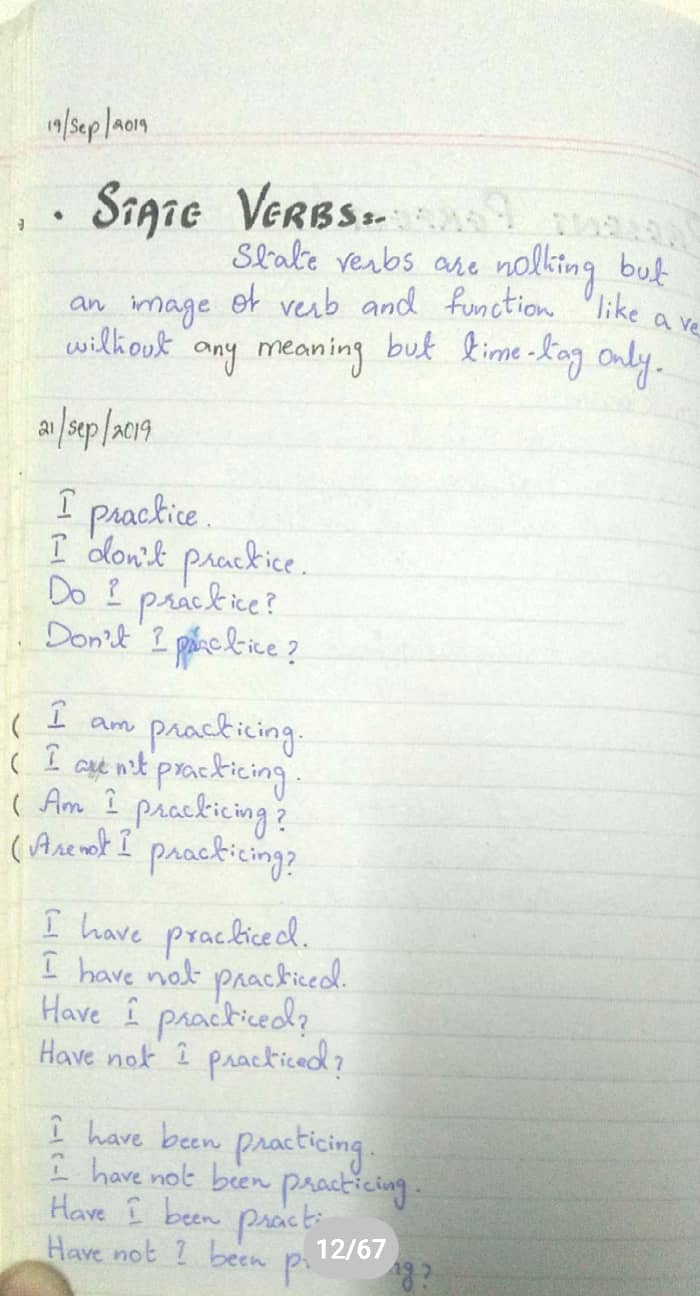 19/Sep/2019
• STATE VERBS:-
State verbs are nothing but
an image of verb and function like a ve
without any meaning but time-tag only.
21/Sep/2019
I practice.
I don't practice.
Do I practice?
Don't I practice?
( I am practicing.
( I aren't practicing.
( Am I practicing?
( Are not I practicing?
I have practiced.
I have not practiced.
Have I practiced?
Have not I practiced?
I have been practicing.
I have not been practicing.
Have I been practi
Have not I been p ng?
12/67